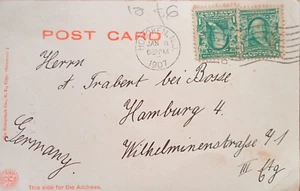 POST CARD
HOBOKEN, N.J.
JAN
1907
Herrn
J. Trabert bei Bosse
Hamburg 4.
Wilhelminenstraße 71
III Etg
Germany
This side for the Address.